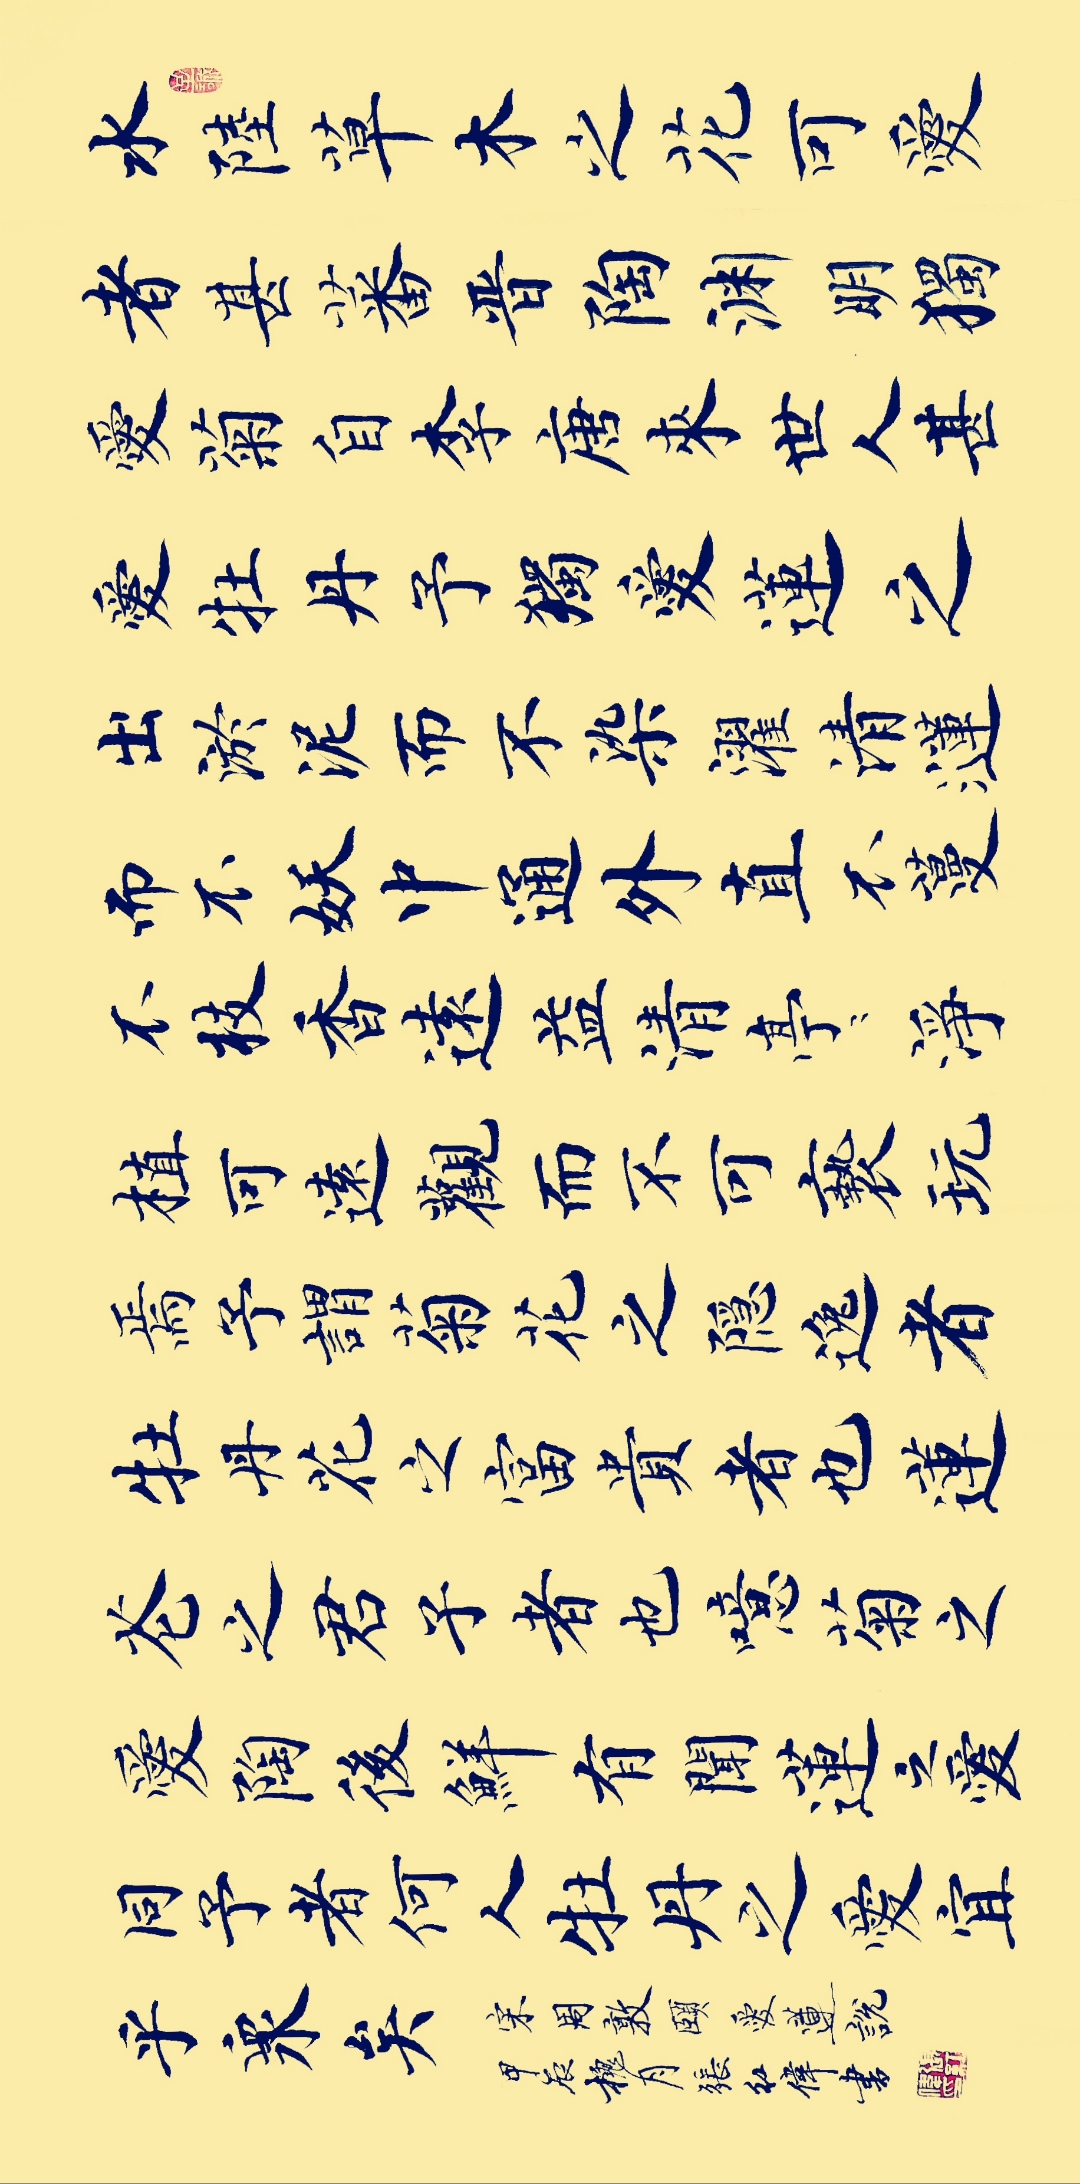 水陸草木之花可愛
者甚蕃晉陶淵明獨
愛菊自李唐来世人甚
愛牡丹予獨愛蓮之
出淤泥而不染濯清漣
而不妖中通外直不蔓
不枝香遠益清亭〻淨
植可遠觀而不可褻玩
焉予謂菊花之隱逸者
牡丹花之富貴者也蓮
花之君子者也噫菊之
愛陶後鮮有聞蓮之愛
同予者何人牡丹之愛宜
乎衆矣
宋周敦頤愛蓮說
甲辰槐月張偉書